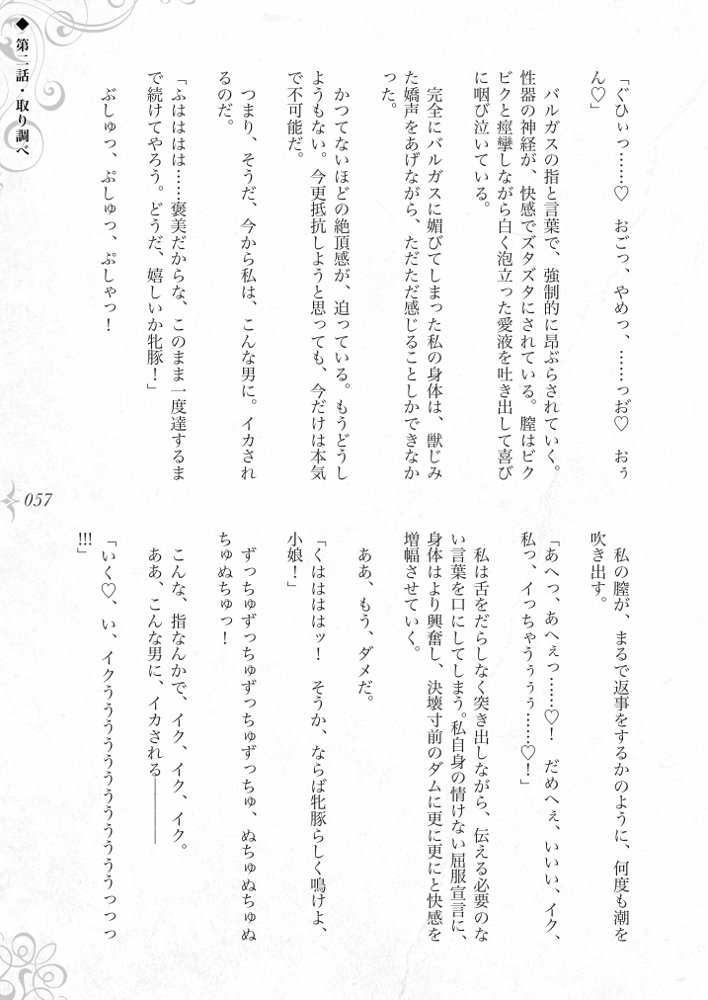 ◆ 第二話・取り調べ
「ぐひぃっ……♡　おごっ、やめっ、……っお゛♡　おぅ
ん♡」
バルガスの指と言葉で、強制的に昂ぶらされていく。
性器の神経が、快感でズタズタにされている。膣はビク
ビクと痙攣しながら白く泡立った愛液を吐き出して喜び
に咽び泣いている。
完全にバルガスに媚びてしまった私の身体は、獣じみ
た嬌声をあげながら、ただただ感じることしかできなか
った。
かつてないほどの絶頂感が、迫っている。もうどうし
ようもない。今更抵抗しようと思っても、今だけは本気
で不可能だ。
つまり、そうだ、今から私は、こんな男に。イカされ
るのだ。
「ふはははは……褒美だからな、このまま一度達するま
で続けてやろう。どうだ、嬉しいか牝豚！」
ぶしゅっ、ぷしゅっ、ぷしゃっ！
私の膣が、まるで返事をするかのように、何度も潮を
吹き出す。
「あへっ、あへぇっ……♡！　だめへぇ、いいい、イク、
私っ、イっちゃうぅぅぅ……♡！」
私は舌をだらしなく突き出しながら、伝える必要のな
い言葉を口にしてしまう。私自身の情けない屈服宣言に、
身体はより興奮し、決壊寸前のダムに更に更にと快感を
増幅させていく。
ああ、もう、ダメだ。
「くははははッ！　そうか、ならば牝豚らしく鳴けよ、
小娘！」
ずっちゅずっちゅずっちゅずっちゅ、ぬちゅぬちゅぬ
ちゅぬちゅっ！
こんな、指なんかで、イク、イク、イク。
ああ、こんな男に、イカされる――――
「いく♡、い、イクううううううううううううっっっ
!!!」
057